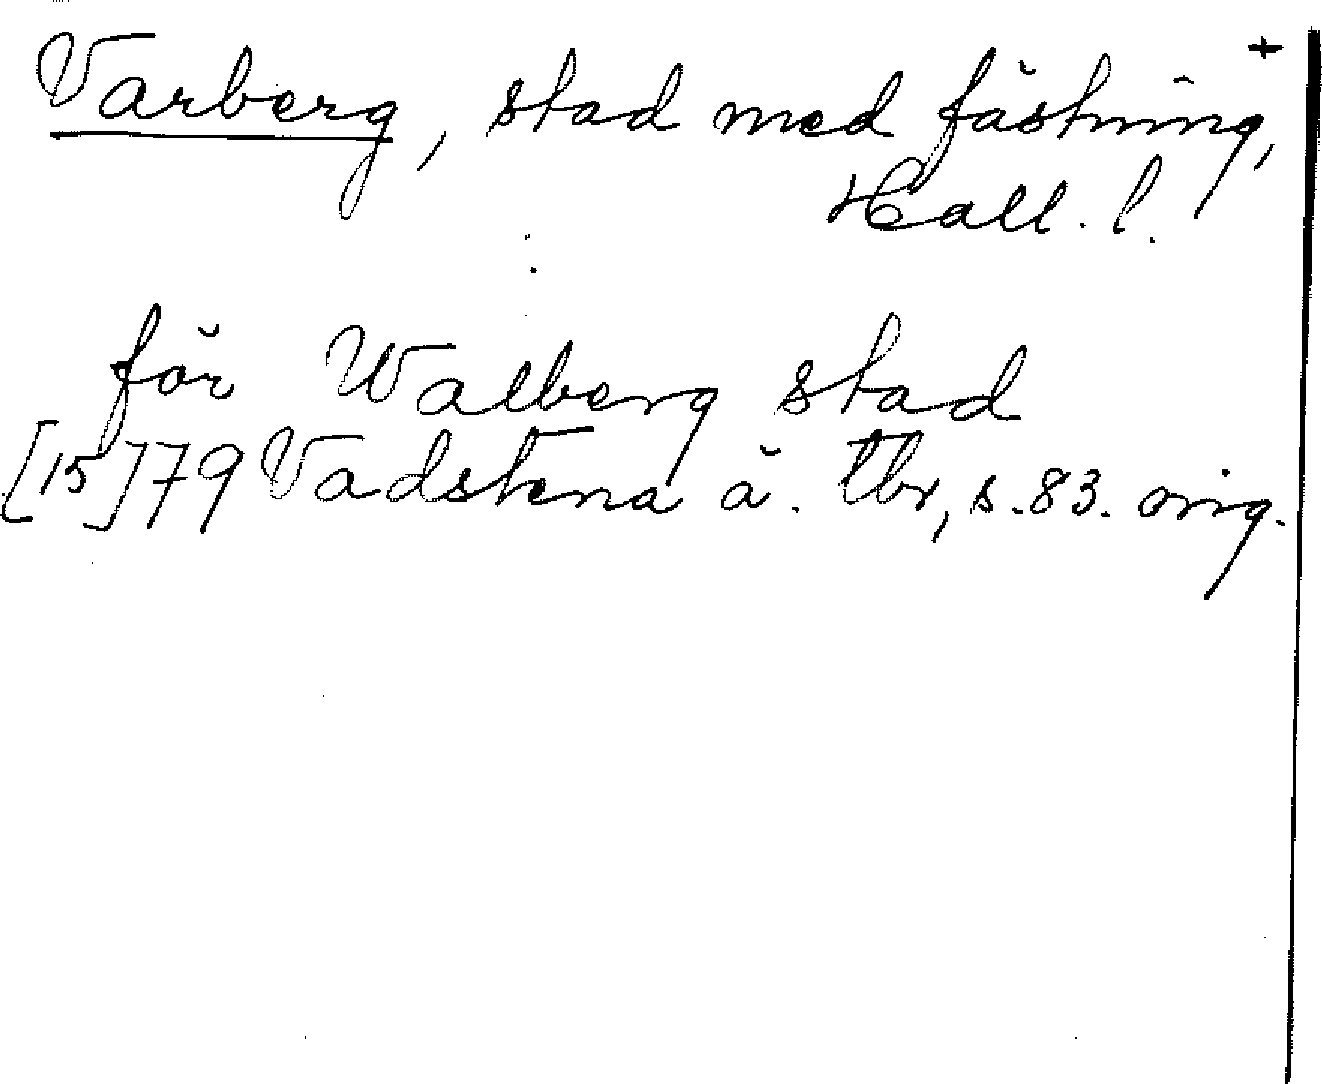 Varberg, stad med fästning, +
Hall. l.
för Walberg stad
[15]79 Vadstena ä. tbr, s. 83. orig.